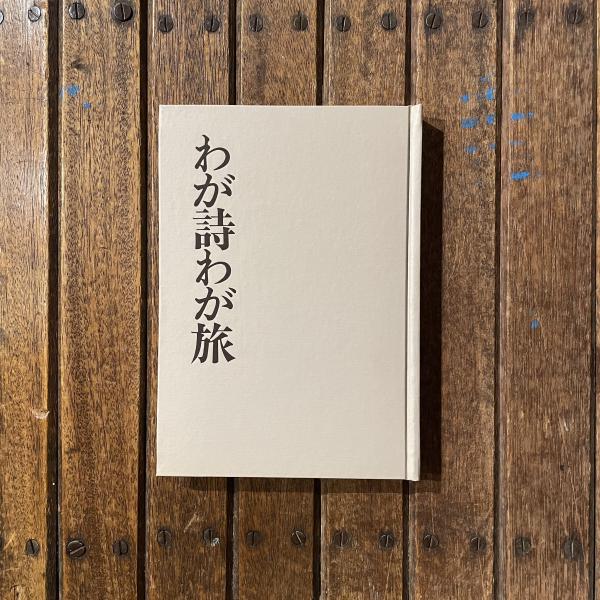 わが詩わが旅